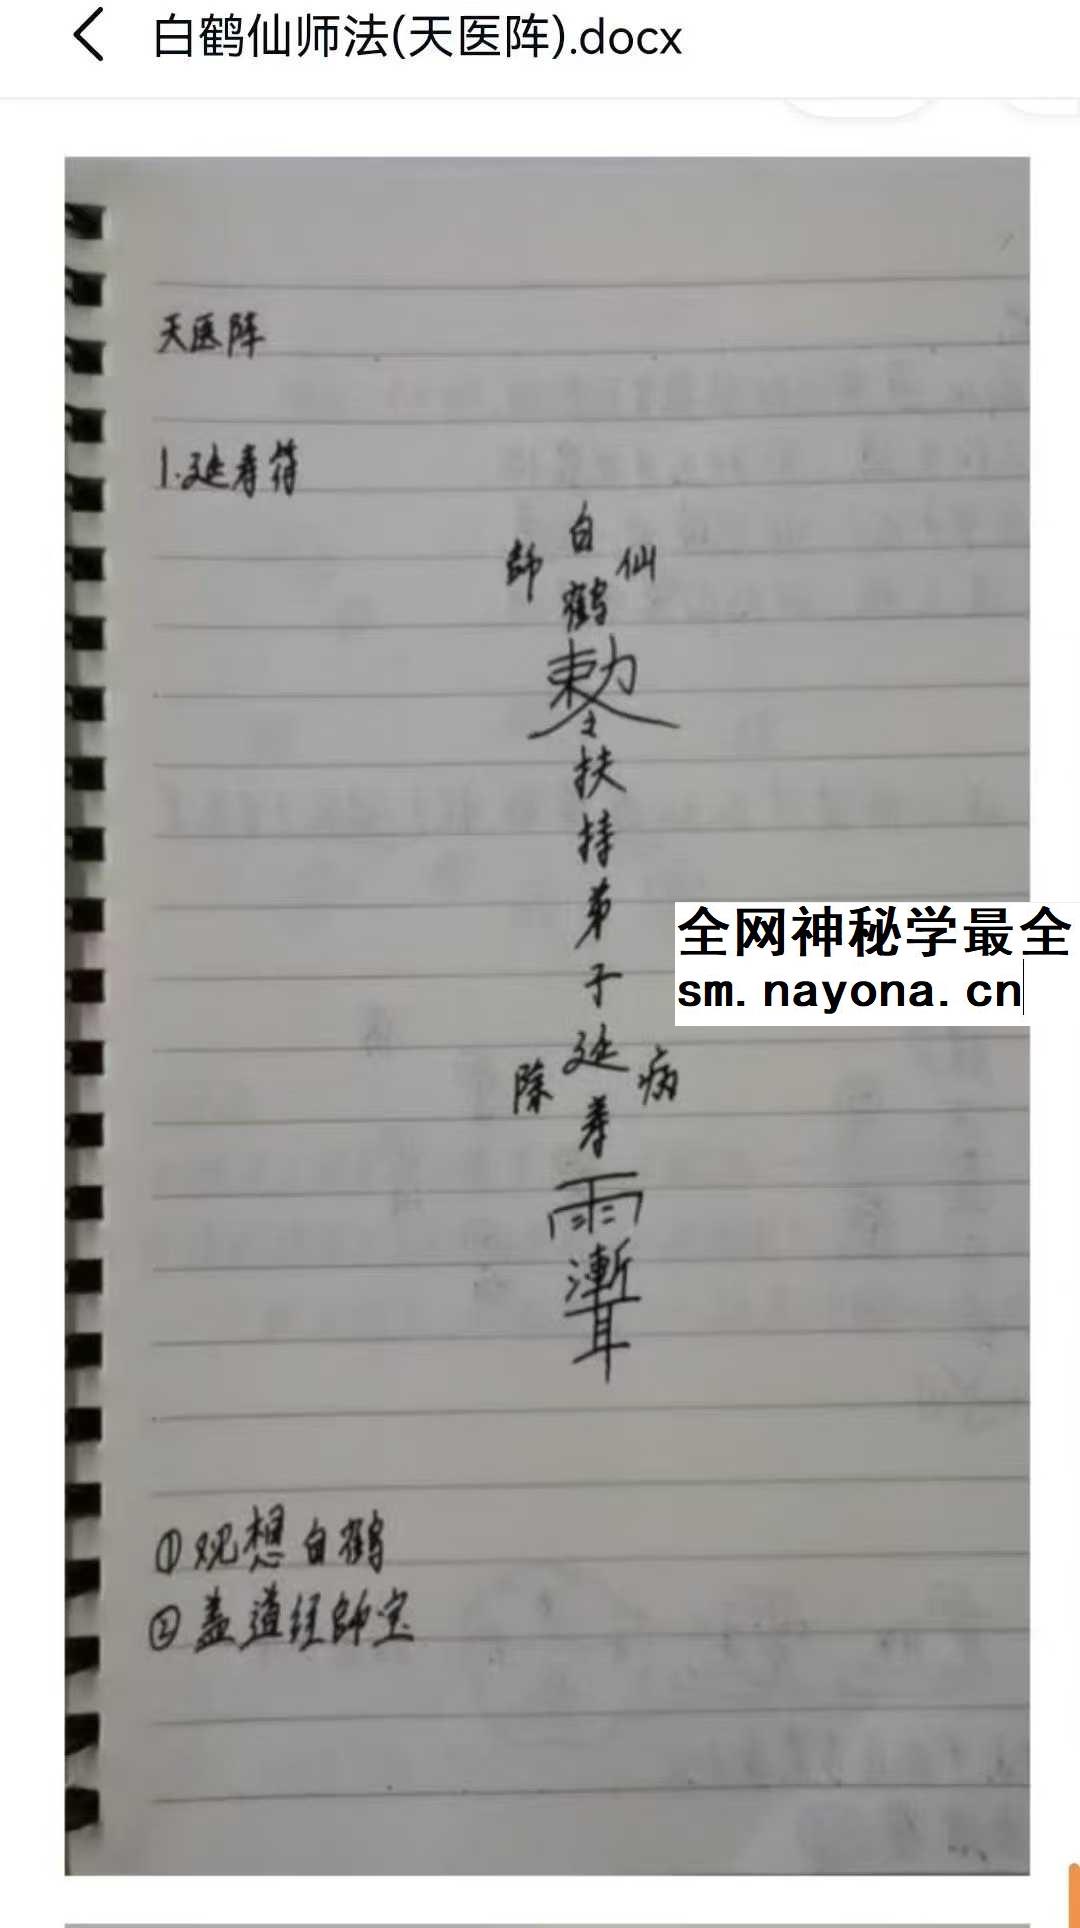 白鹤仙师法(天医阵).docx
天医阵
1.延寿符
白
師 仙
鹤
敕
令
扶
持
弟
子
延
除 病
寿
雨
漸
耳
全网神秘学最全
sm.nayona.cn
①观想白鹤
②盖道经師宝